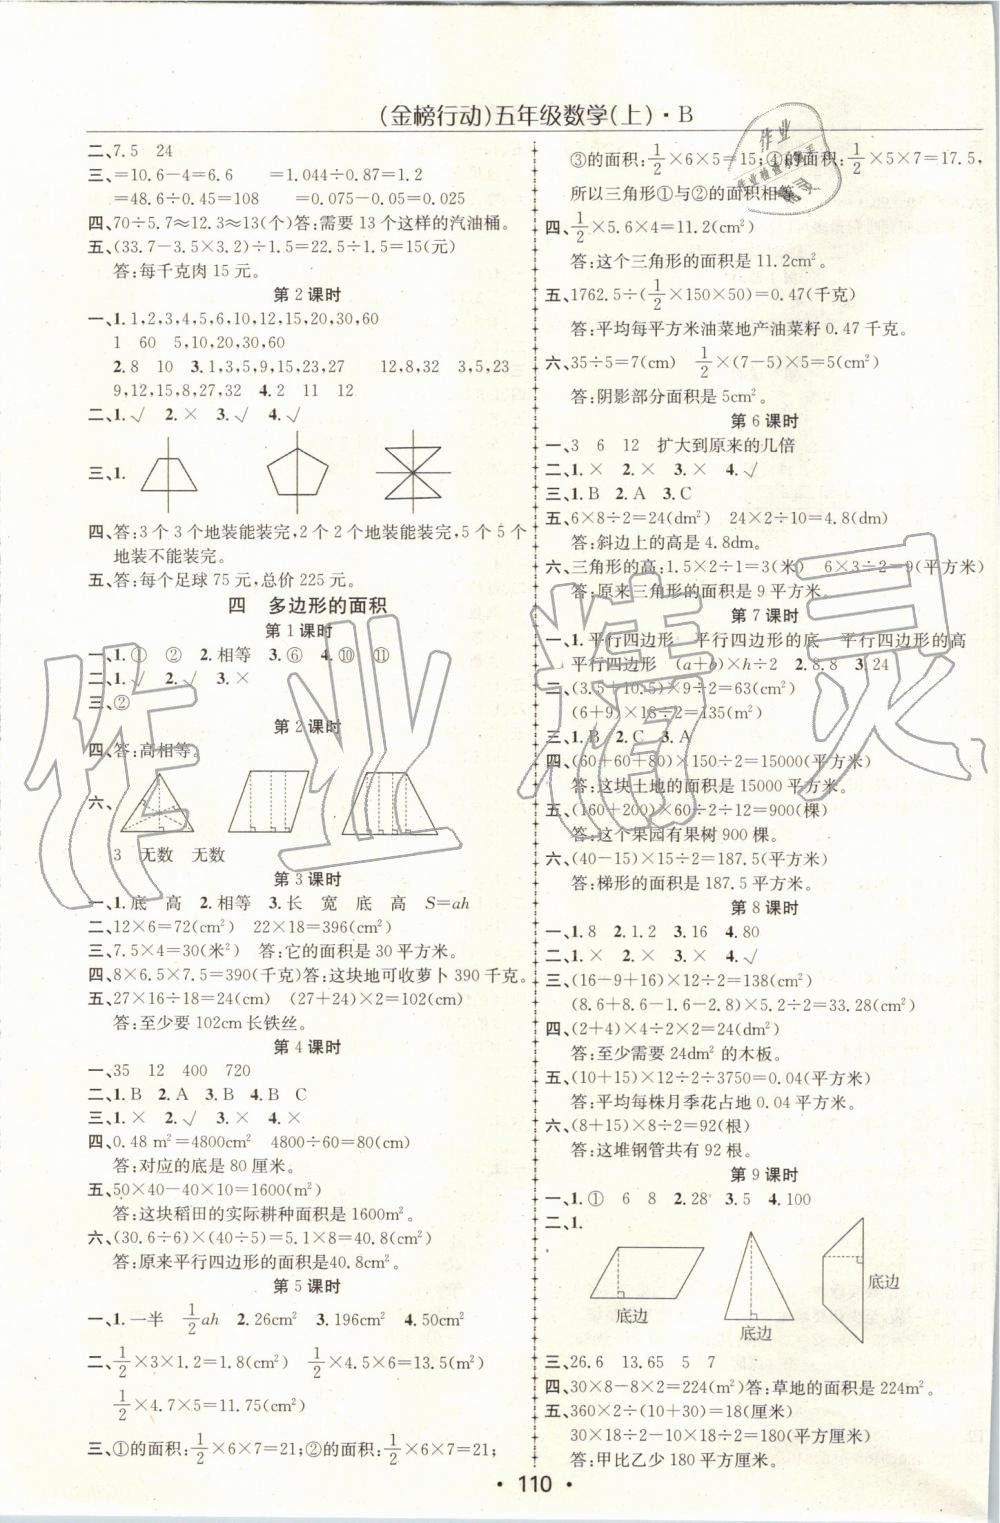 (金榜行动)五年级数学(上)·B
二、7.5 24
三、=10.6-4=6.6 =1.044÷0.87=1.2
=48.6÷0.45=108 =0.075-0.05=0.025
四、70÷5.7≈12.3≈13(个)答:需要 13 个这样的汽油桶。
五、(33.7-3.5×3.2)÷1.5=22.5÷1.5=15(元)
答:每千克肉 15 元。
第 2 课时
一、1.1,2,3,4,5,6,10,12,15,20,30,60
1 60 5,10,20,30,60
2.8 10 3.1,3,5,9,15,23,27 12,8,32 3,5,23
9,12,15,8,27,32 4.2 11 12
二、1.√ 2.× 3.√ 4.√
三、1.
四、答:3 个 3 个地装能装完,2 个 2 个地装能装完,5 个 5 个
地装不能装完。
五、答:每个足球 75 元,总价 225 元。
四 多边形的面积
第 1 课时
一、1.① ② 2.相等 3.⑥ 4.⑩ ⑪
二、1.√ 2.√ 3.×
三、②
第 2 课时
四、答:高相等。
六、
3 无数 无数
第 3 课时
一、1.底 高 2.相等 3.长 宽 底 高 S=ah
二、12×6=72(cm²) 22×18=396(cm²)
三、7.5×4=30(米²) 答:它的面积是 30 平方米。
四、8×6.5×7.5=390(千克)答:这块地可收萝卜 390 千克。
五、27×16÷18=24(cm) (27+24)×2=102(cm)
答:至少要 102cm 长铁丝。
第 4 课时
一、35 12 400 720
二、1.B 2.A 3.B 4.B C
三、1.× 2.√ 3.× 4.×
四、0.48 m²=4800cm² 4800÷60=80(cm)
答:对应的底是 80 厘米。
五、50×40-40×10=1600(m²)
答:这块稻田的实际耕种面积是 1600m²。
六、(30.6÷6)×(40÷5)=5.1×8=40.8(cm²)
答:原来平行四边形的面积是40.8cm²。
第 5 课时
一、1.一半 1/2ah 2.26cm² 3.196cm² 4.50cm²
二、1/2×3×1.2=1.8(cm²) 1/2×4.5×6=13.5(m²)
1/2×4.7×5=11.75(cm²)
三、①的面积:1/2×6×7=21;②的面积:1/2×6×7=21;
③的面积:1/2×6×5=15;④的面积:1/2×5×7=17.5,
所以三角形①与②的面积相等。
四、1/2×5.6×4=11.2(cm²)
答:这个三角形的面积是 11.2cm²。
五、1762.5÷(1/2×150×50)=0.47(千克)
答:平均每平方米油菜地产油菜籽 0.47 千克。
六、35÷5=7(cm) 1/2×(7-5)×5=5(cm²)
答:阴影部分面积是 5cm²。
第 6 课时
一、3 6 12 扩大到原来的几倍
二、1.× 2.× 3.× 4.√
三、1.B 2.A 3.C
五、6×8÷2=24(dm²) 24×2÷10=4.8(dm)
答:斜边上的高是 4.8dm。
六、三角形的高:1.5×2÷1=3(米) 6×3÷2=9(平方米)
答:原来三角形的面积是 9 平方米。
第 7 课时
一、1.平行四边形 平行四边形的底 平行四边形的高
平行四边形 (a+b)×h÷2 2.8.8 3.24
二、(3.5+10.5)×9÷2=63(cm²)
(6+9)×18÷2=135(m²)
三、1.B 2.C 3.A
四、(60+60+80)×150÷2=15000(平方米)
答:这块土地的面积是 15000 平方米。
五、(160+200)×60÷2÷12=900(棵)
答:这个果园有果树 900 棵。
六、(40-15)×15÷2=187.5(平方米)
答:梯形的面积是 187.5 平方米。
第 8 课时
一、1.8 2.1.2 3.16 4.80
二、1.× 2.× 3.× 4.√
三、(16-9+16)×12÷2=138(cm²)
(8.6+8.6-1.6-2.8)×5.2÷2=33.28(cm²)
四、(2+4)×4÷2×2=24(dm²)
答:至少需要 24dm² 的木板。
五、(10+15)×12÷2÷3750=0.04(平方米)
答:平均每株月季花占地 0.04 平方米。
六、(8+15)×8÷2=92(根)
答:这堆钢管共有 92 根。
第 9 课时
一、1.① 6 8 2.28 3.5 4.100
二、1.
底边
底边
底边
三、26.6 13.65 5 7
四、30×8-8×2=224(m²)答:草地的面积是 224m²。
五、360×2÷(10+30)=18(厘米)
30×18÷2-10×18÷2=180(平方厘米)
答:甲比乙少 180 平方厘米。
· 110 ·
作业精灵